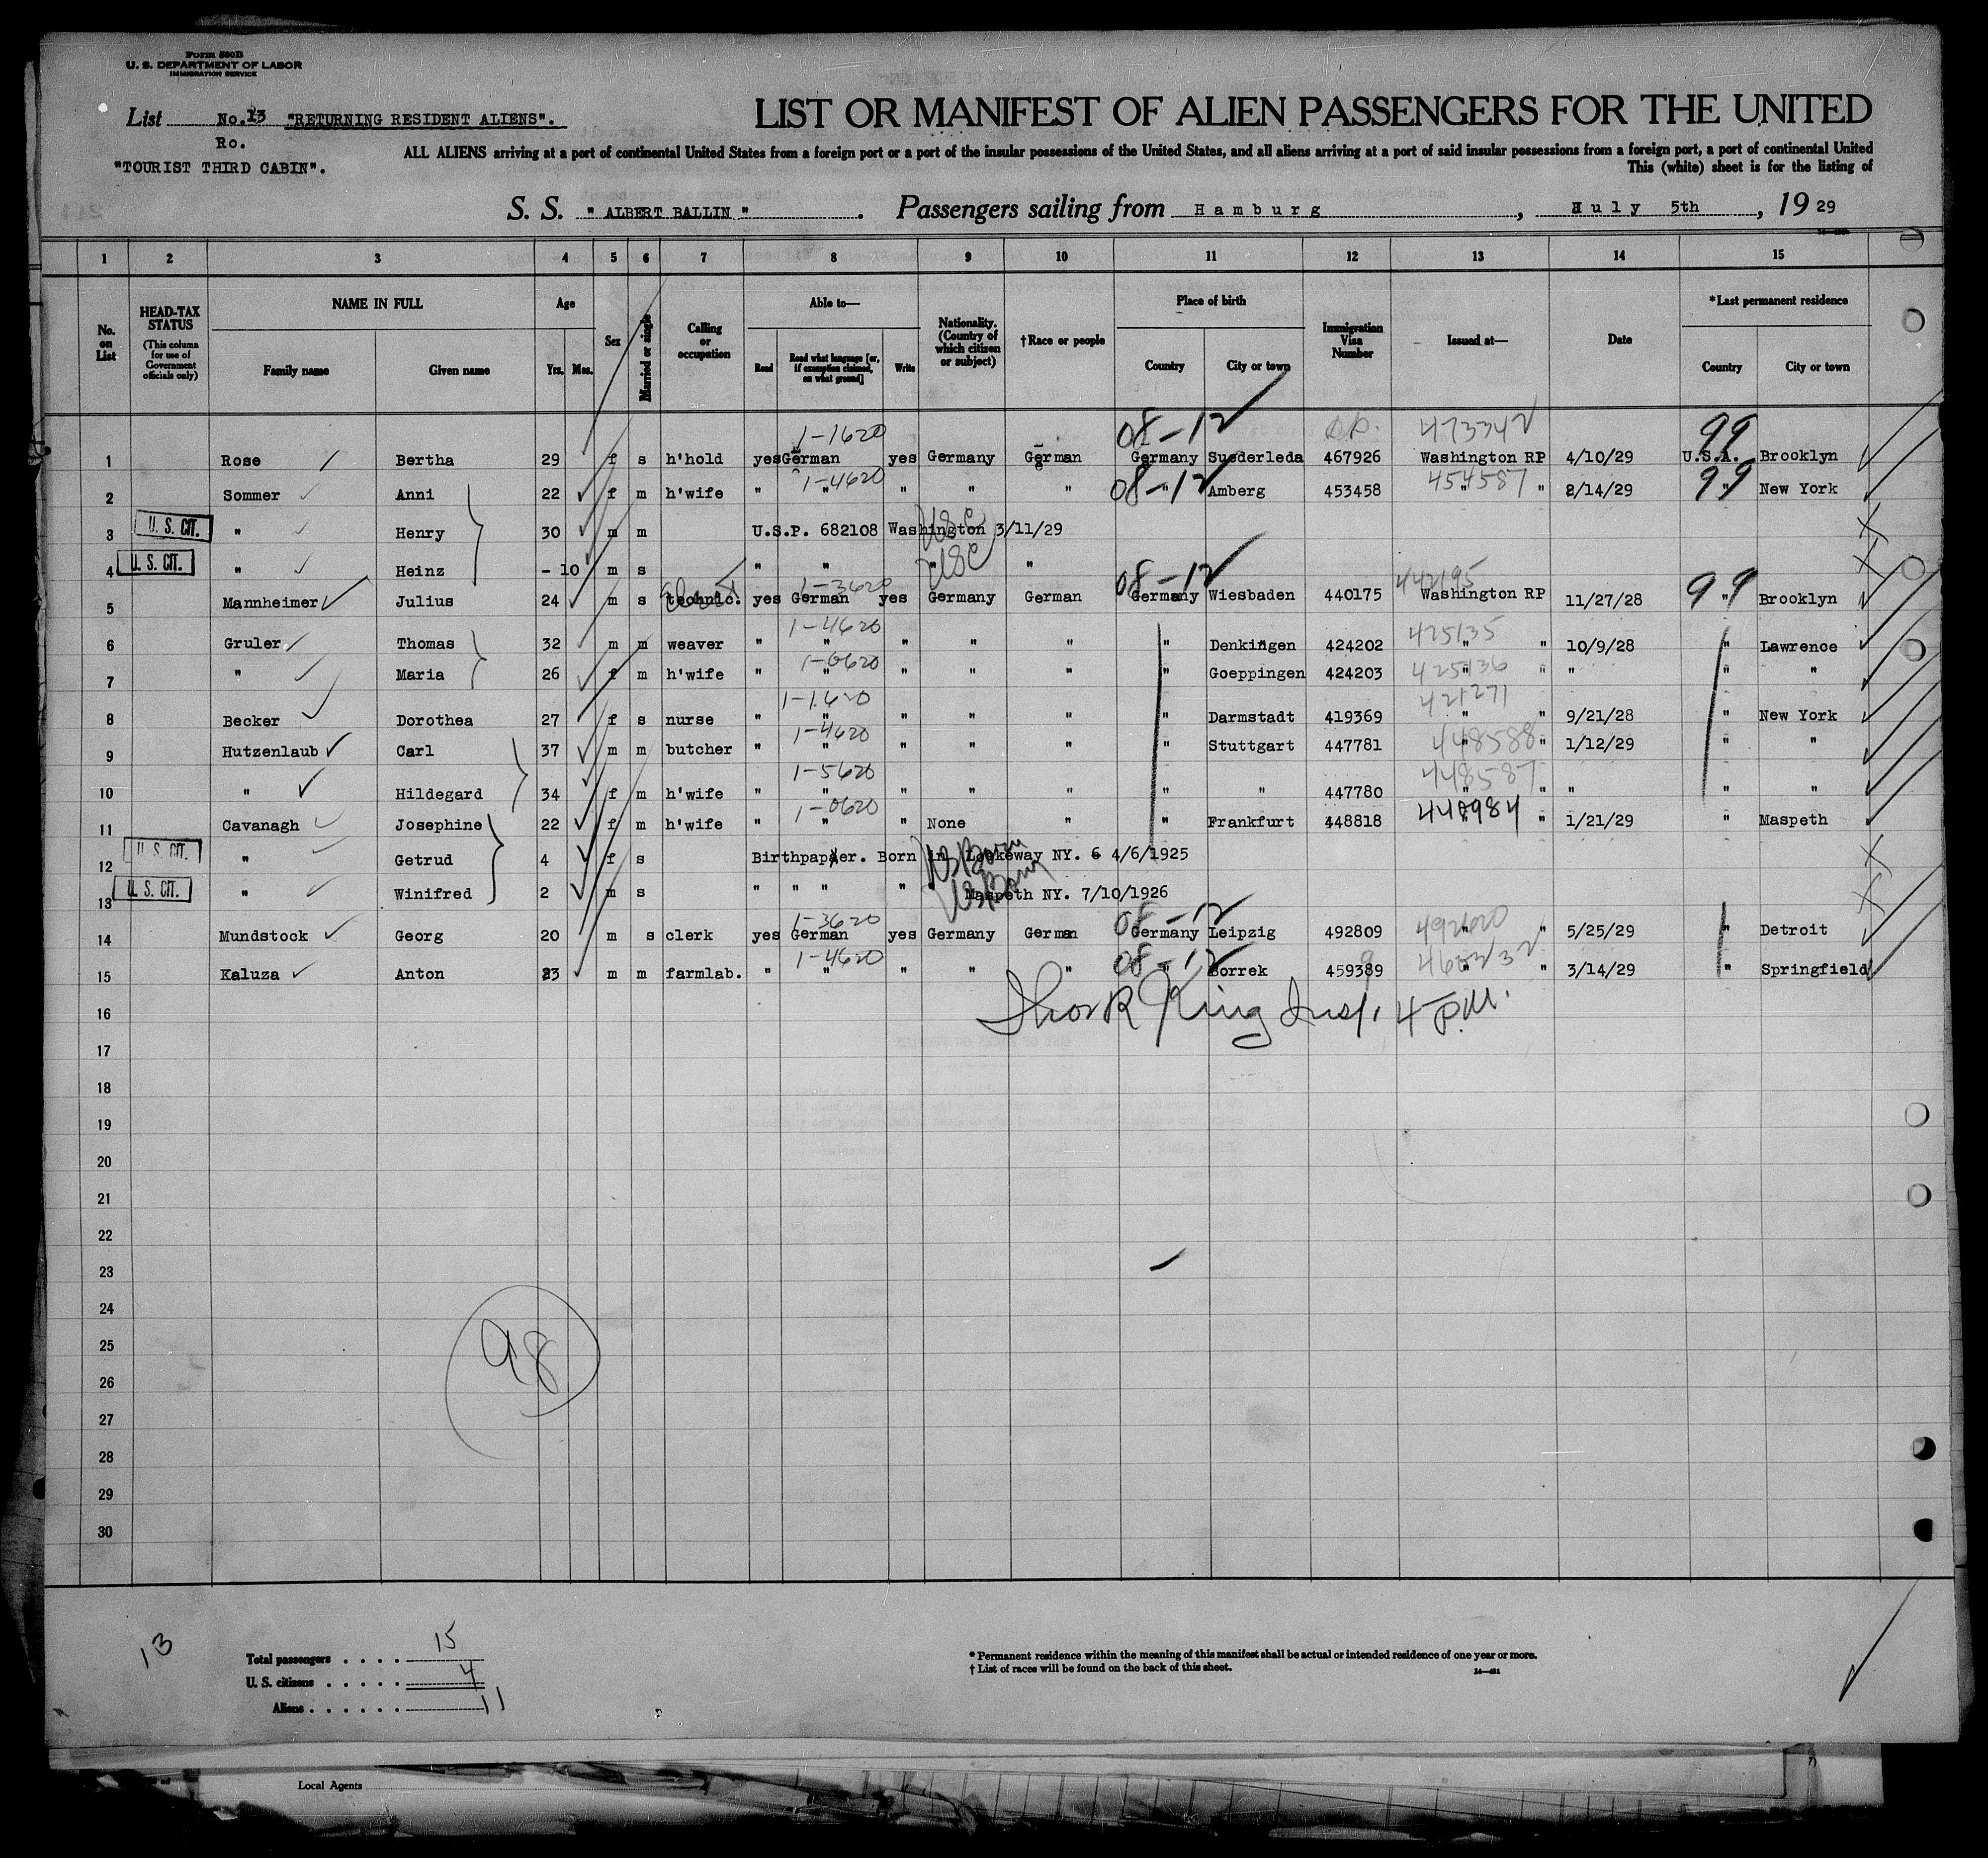 Form 500B
U. S. DEPARTMENT OF LABOR
IMMIGRATION SERVICE
List No. 13 "RETURNING RESIDENT ALIENS".
Ro.
"TOURIST THIRD CABIN".
LIST OR MANIFEST OF ALIEN PASSENGERS FOR THE UNITED
ALL ALIENS arriving at a port of continental United States from a foreign port or a port of the insular possessions of the United States, and all aliens arriving at a port of said insular possessions from a foreign port, a port of continental United
This (white) sheet is for the listing of
S. S. " ALBERT BALLIN " . Passengers sailing from Hamburg , July 5th , 19 29
1 2 3 4 5 6 7 8 9 10 11 12 13 14 15
No. on List
HEAD-TAX STATUS (This column for use of Government officials only)
NAME IN FULL Family name Given name
Age Yrs. Mos.
Sex
Married or single
Calling or occupation
Able to— Read Read what language [or, if exemption claimed, on what ground] Write
Nationality. (Country of which citizen or subject)
† Race or people
Place of birth Country City or town
Immigration Visa Number
Issued at—
Date
*Last permanent residence Country City or town
1-1620 08-12 473342 99
1 Rose Bertha 29 f s h'hold yes German yes Germany German Germany Suederleda 467926 Washington RP 4/10/29 U.S.A. Brooklyn
1-4620 08-12 454587 99
2 Sommer Anni 22 f m h'wife " " " " " " Amberg 453458 " " 2/14/29 " New York
3 U. S. CIT. " Henry 30 m m U.S.P. 682108 Washington 3/11/29 USC
4 U. S. CIT. " Heinz - 10 m s " " " " USC
1-3620 08-12 442195 99
5 Mannheimer Julius 24 m s technic. yes German yes Germany German Germany Wiesbaden 440175 Washington RP 11/27/28 " Brooklyn
1-4620 425135
6 Gruler Thomas 32 m m weaver " " " " " " Denkingen 424202 " " 10/9/28 " Lawrence
1-0620 425136
7 " Maria 26 f m h'wife " " " " " " Goeppingen 424203 " " " " "
1-1620 421271
8 Becker Dorothea 27 f s nurse " " " " " " Darmstadt 419369 " " 9/21/28 " New York
1-4620 448588
9 Hutzenlaub Carl 37 m m butcher " " " " " " Stuttgart 447781 " " 1/12/29 " "
1-5620 448587
10 " Hildegard 34 f m h'wife " " " " " " " 447780 " " " " "
1-0620
11 Cavanagh Josephine 22 f m h'wife " " " None " " Frankfurt 448818 " " 1/21/29 " Maspeth
12 U. S. CIT. " Getrud 4 f s Birthpaper. Born in Lockeway NY. 4/6/1925 US Born
13 U. S. CIT. " Winifred 2 m s " " " " " Maspeth NY. 7/10/1926 US Born
1-3620 08-12
14 Mundstock Georg 20 m s clerk yes German yes Germany German Germany Leipzig 492809 " " 5/25/29 " Detroit
1-4620 08-12
15 Kaluza Anton 23 m m farmlab. " " " " " " Borrek 459389 " " 3/14/29 " Springfield
King Insp. 4 P.M.
16
17
18
19
20
21
22
23
24
25
26
27
28
29
30
98
13
Total passengers . . . . 15
U. S. citizens . . . . . 4
Aliens . . . . . . 11
* Permanent residence within the meaning of this manifest shall be actual or intended residence of one year or more.
† List of races will be found on the back of this sheet.
Local Agents